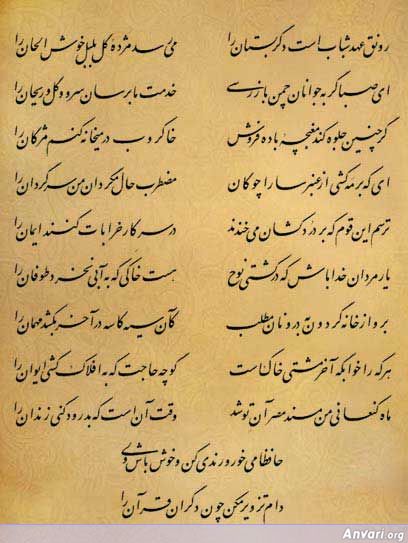 رونق عهد شباب است دگر بستان را می‌رسد مژده گل بلبل خوش الحان را
ای صبا گر به جوانان چمن باز رسی خدمت ما برسان سرو و گل و ریحان را
گر چنین جلوه کند مغبچه باده فروش خاکروب در میخانه کنم مژگان را
ای که بر مه کشی از عنبر سارا چوگان مضطرب حال مگردان من سرگردان را
ترسم این قوم که بر دردکشان می‌خندند در سر کار خرابات کنند ایمان را
یار مردان خدا باش که در کشتی نوح هست خاکی که به آبی نخرد طوفان را
برو از خانه گردون به در و نان مطلب کآن سیه کاسه در آخر بکشد مهمان را
هر که را خوابگه آخر مشتی خاک است گو چه حاجت که به افلاک کشی ایوان را
ماه کنعانی من مسند مصر آن تو شد وقت آن است که بدرود کنی زندان را
حافظا می خور و رندی کن و خوش باش ولی
دام تزویر مکن چون دگران قرآن را
Anvari.org